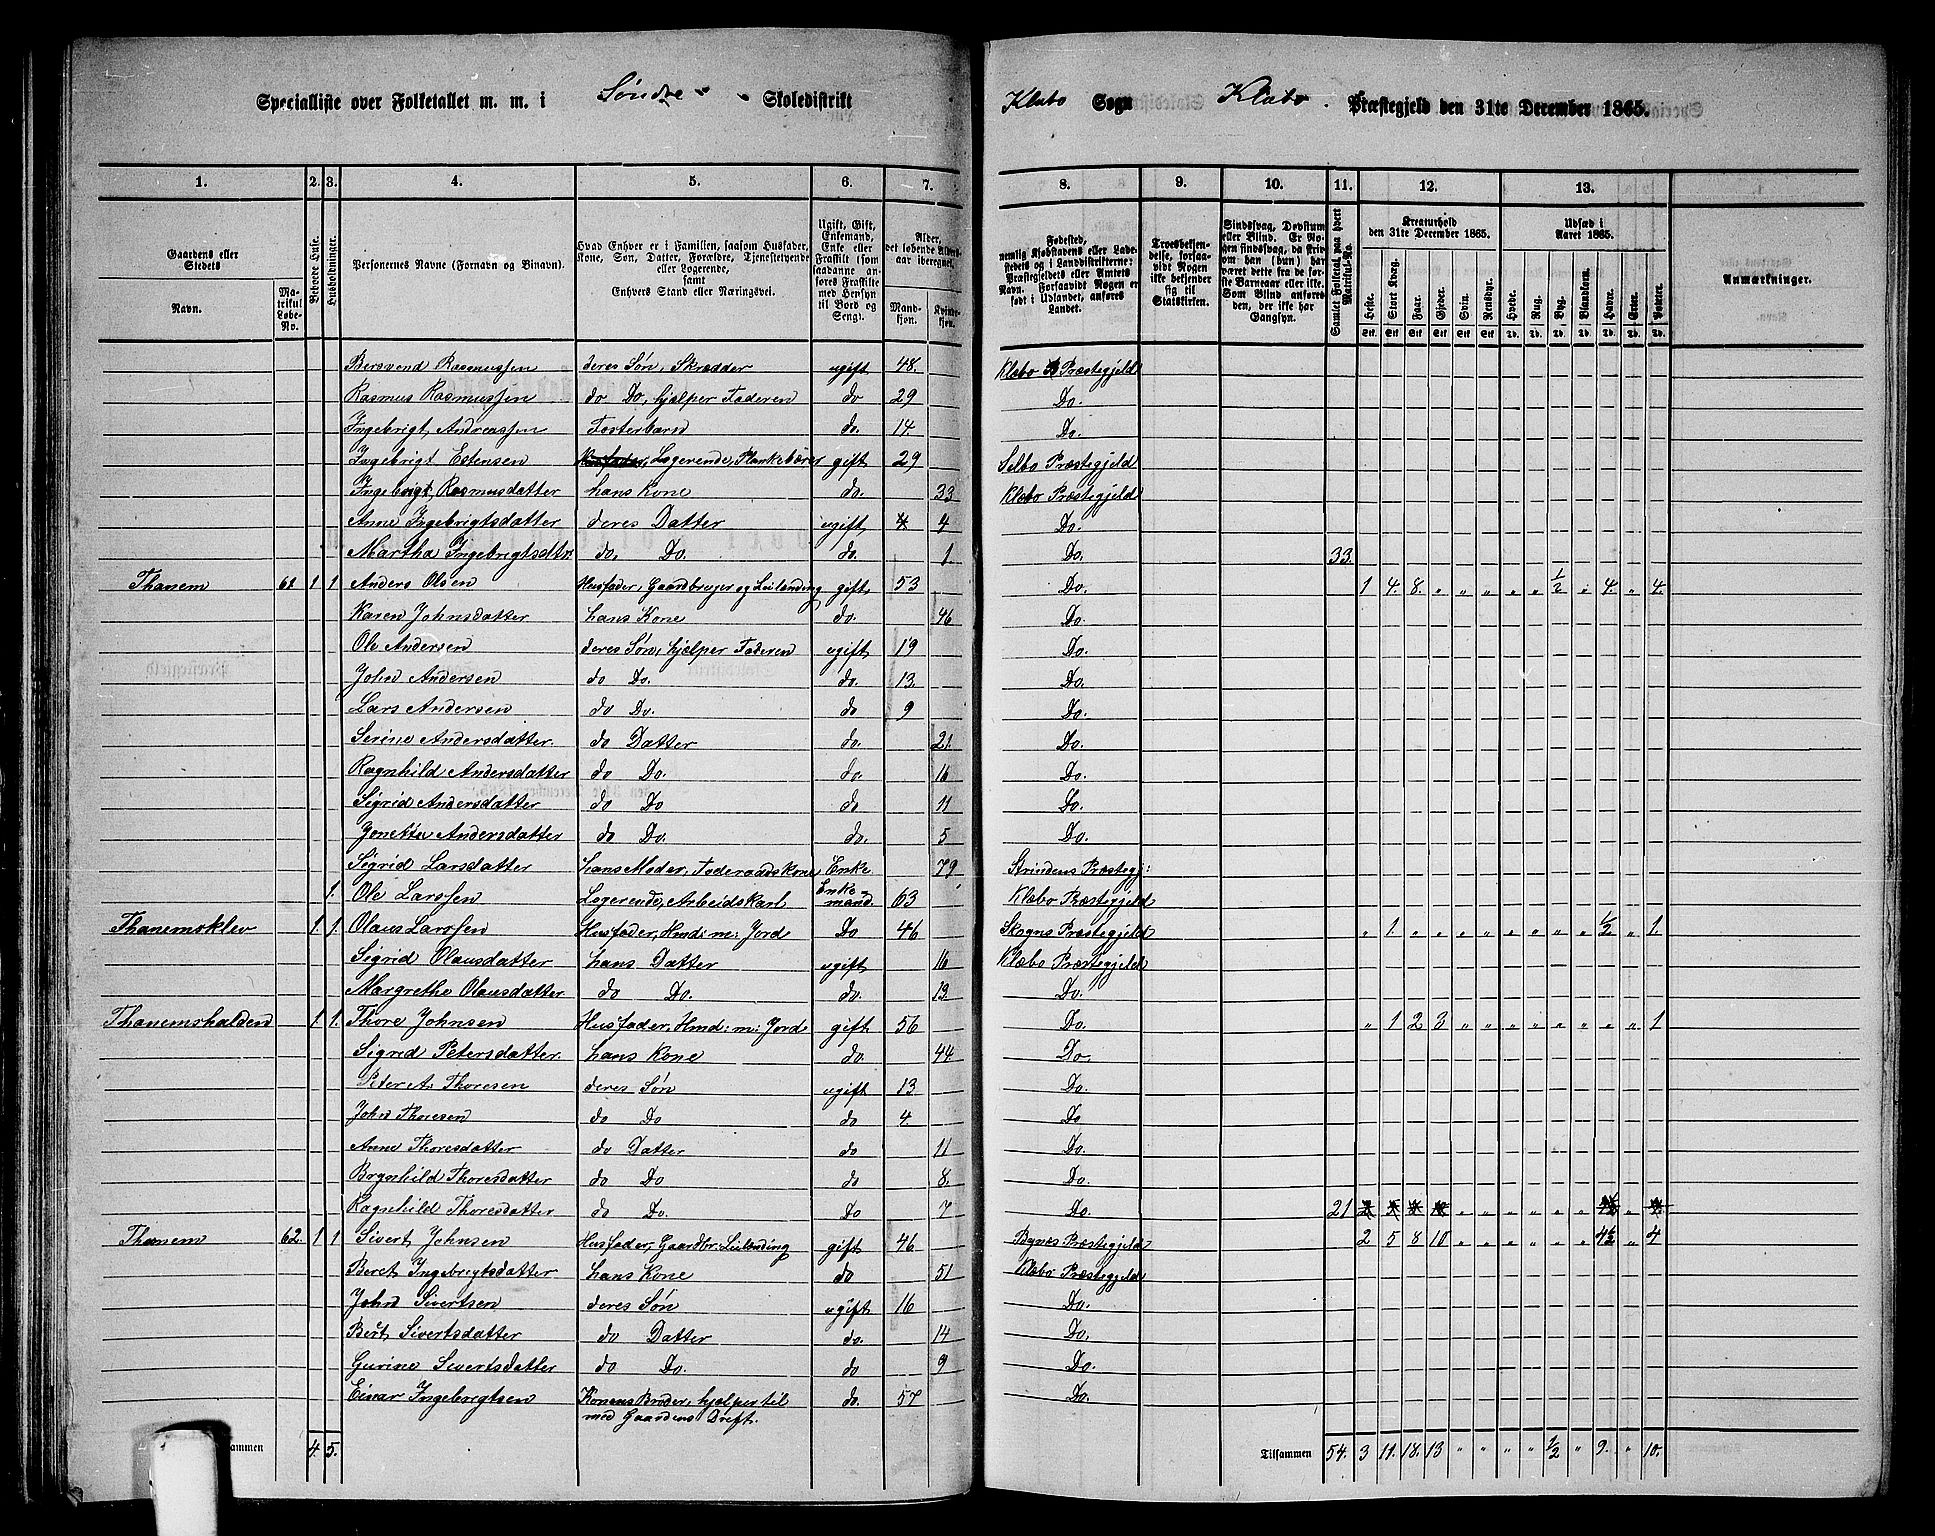 Specialliste over Folketallet m. m. i Søndre Skoledistrikt Klæbo Sogn Klæbo Præstegjeld den 31te December 1865.
1. 2. 3. 4. 5. 6. 7. 8. 9. 10. 11. 12. 13.
Gaardens eller Stedets
Navn.
Matrikul Løbe-No.
Beboede Huse.
Husholdninger.
Personernes Navne (Fornavn og Binavn).
Hvad Enhver er i Familien, saasom Husfader, Kone, Søn, Datter, Forældre, Tjenestetyende eller Logerende, samt Enhvers Stand eller Næringsvei.
Ugift, Gift, Enkemand, Enke eller Fraskilt (som saadanne anføres Fraskilte med Hensyn til Bord og Seng).
Alder, det løbende Alders-aar iberegnet.
Mandkjøn. Kvindekjøn.
Fødested, nemlig Kjøbstadens eller Ladestedets og i Landdistrikterne: Præstegjeldets eller Amtets Navn. Forsaavidt Nogen er født i Udlandet, anføres Landet.
Troesbekjendelse, forsaavidt Nogen ikke bekjender sig til Statskirken.
Sindssvag, Døvstum eller Blind. Er Nogen sindssvag, da skrives om han (hun) har været dette fra de første Barneaar eller ikke. Som Blind anføres den, der ikke har Gangsyn.
Samlet Folketal paa hvert Matrikul-No.
Kreaturhold den 31te December 1865.
Heste. Stort Kvæg. Faar. Gjeder. Svin. Rensdyr.
Udsæd i Aaret 1865.
Hvede. Rug. Byg. Blandkorn. Havre. Erter. Poteter.
Anmærkninger.
Bersvend Rasmussen deres Søn, Skrædder ugift 48. Klæbo Præstegjeld
Rasmus Rasmussen do Do, hjælper Faderen do 29 Do.
Ingebrigt Andreassen Fosterbarn do. 14. Do.
Ingebrigt Estensen Logerende, Plankebærer gift 29 Selbo Præstegjeld
Ingebrigt Rasmusdatter hans Kone do. 33 Klæbo Præstegjeld
Anne Ingebrigtsdatter deres Datter ugift 4 Do.
Martha Ingebrigtsdtr. do. Do. do. 1. Do. 33.
Thanem 61 1 1. Anders Olsen Husfader, Gaardbruger og Leilænding gift 53 Do. 1 4. 8. " " " " " 1/2 " 4. " 4.
Karen Johnsdatter hans Kone do. 46 Do.
Ole Andersen deres Søn, hjælper Faderen ugift 19 Do.
John Andersen do Do. do. 13. Do.
Lars Andersen do Do. do 9 Do.
Serine Andersdatter. do Datter do. 21. Do.
Ragnhild Andersdatter do Do. do. 16 Do.
Sigrid Andersdatter do Do do 11 Do.
Jonette Andersdatter do Do. do. 5 Do.
Sigrid Larsdatter hans Moder, Føderaadskone Enke 79 Strindens Præstegj:
1. Ole Larssen Logerende, Arbeidskarl Enkemand. 63 Klæbo Præstegjeld
Thanemsklev 1 1. Olaus Larssen Husfader, Hmd: m: Jord Do 46 Skogns Præstegjeld " 1. " " " " " " " " 1/2 " 1.
Sigrid Olausdatter hans Datter ugift 16 Klæbo Præstegjeld
Margrethe Olausdatter do Do. do. 13. Do.
Thanemshalden 1 1. Thore Johnsen Husfader, Hmd: m: Jord gift 56 Do. " 1 2 3 " " " " " " " " 1
Sigrid Petersdatter. hans Kone do. 44. Do.
Peter A. Thoresen deres Søn ugift 13 Do.
John Thoresen do Do do 4. Do
Anne Thoresdatter do Datter do 11 Do.
Brynhild Thoresdatter do Do do 8. Do.
Ragnhild Thoresdatter do Do. Do 7 Do. 21
Thanem 62. 1 1 Sivert Johnsen Husfader, Gaardbr: Leilænding gift 46 Bynes Præstegjeld 2 5 8 10 " " " " " " 4½ " 4
Beret Ingebrigtsdatter hans Kone do 51 Klæbo Præstegjeld
John Sivertsen deres Søn ugift 16 Do.
Berit Sivertsdatter do Datter do. 14 Do.
Gurine Sivertsdatter do Do. do 9 Do.
Einar Ingebrigtsen Konens Broder, hjælper til do. 57 Do.
med Gaardens Drift.
sammen 4. 5. Tilsammen 54. 3 11. 18. 13 " " " " 1/2 " 9. " 10.